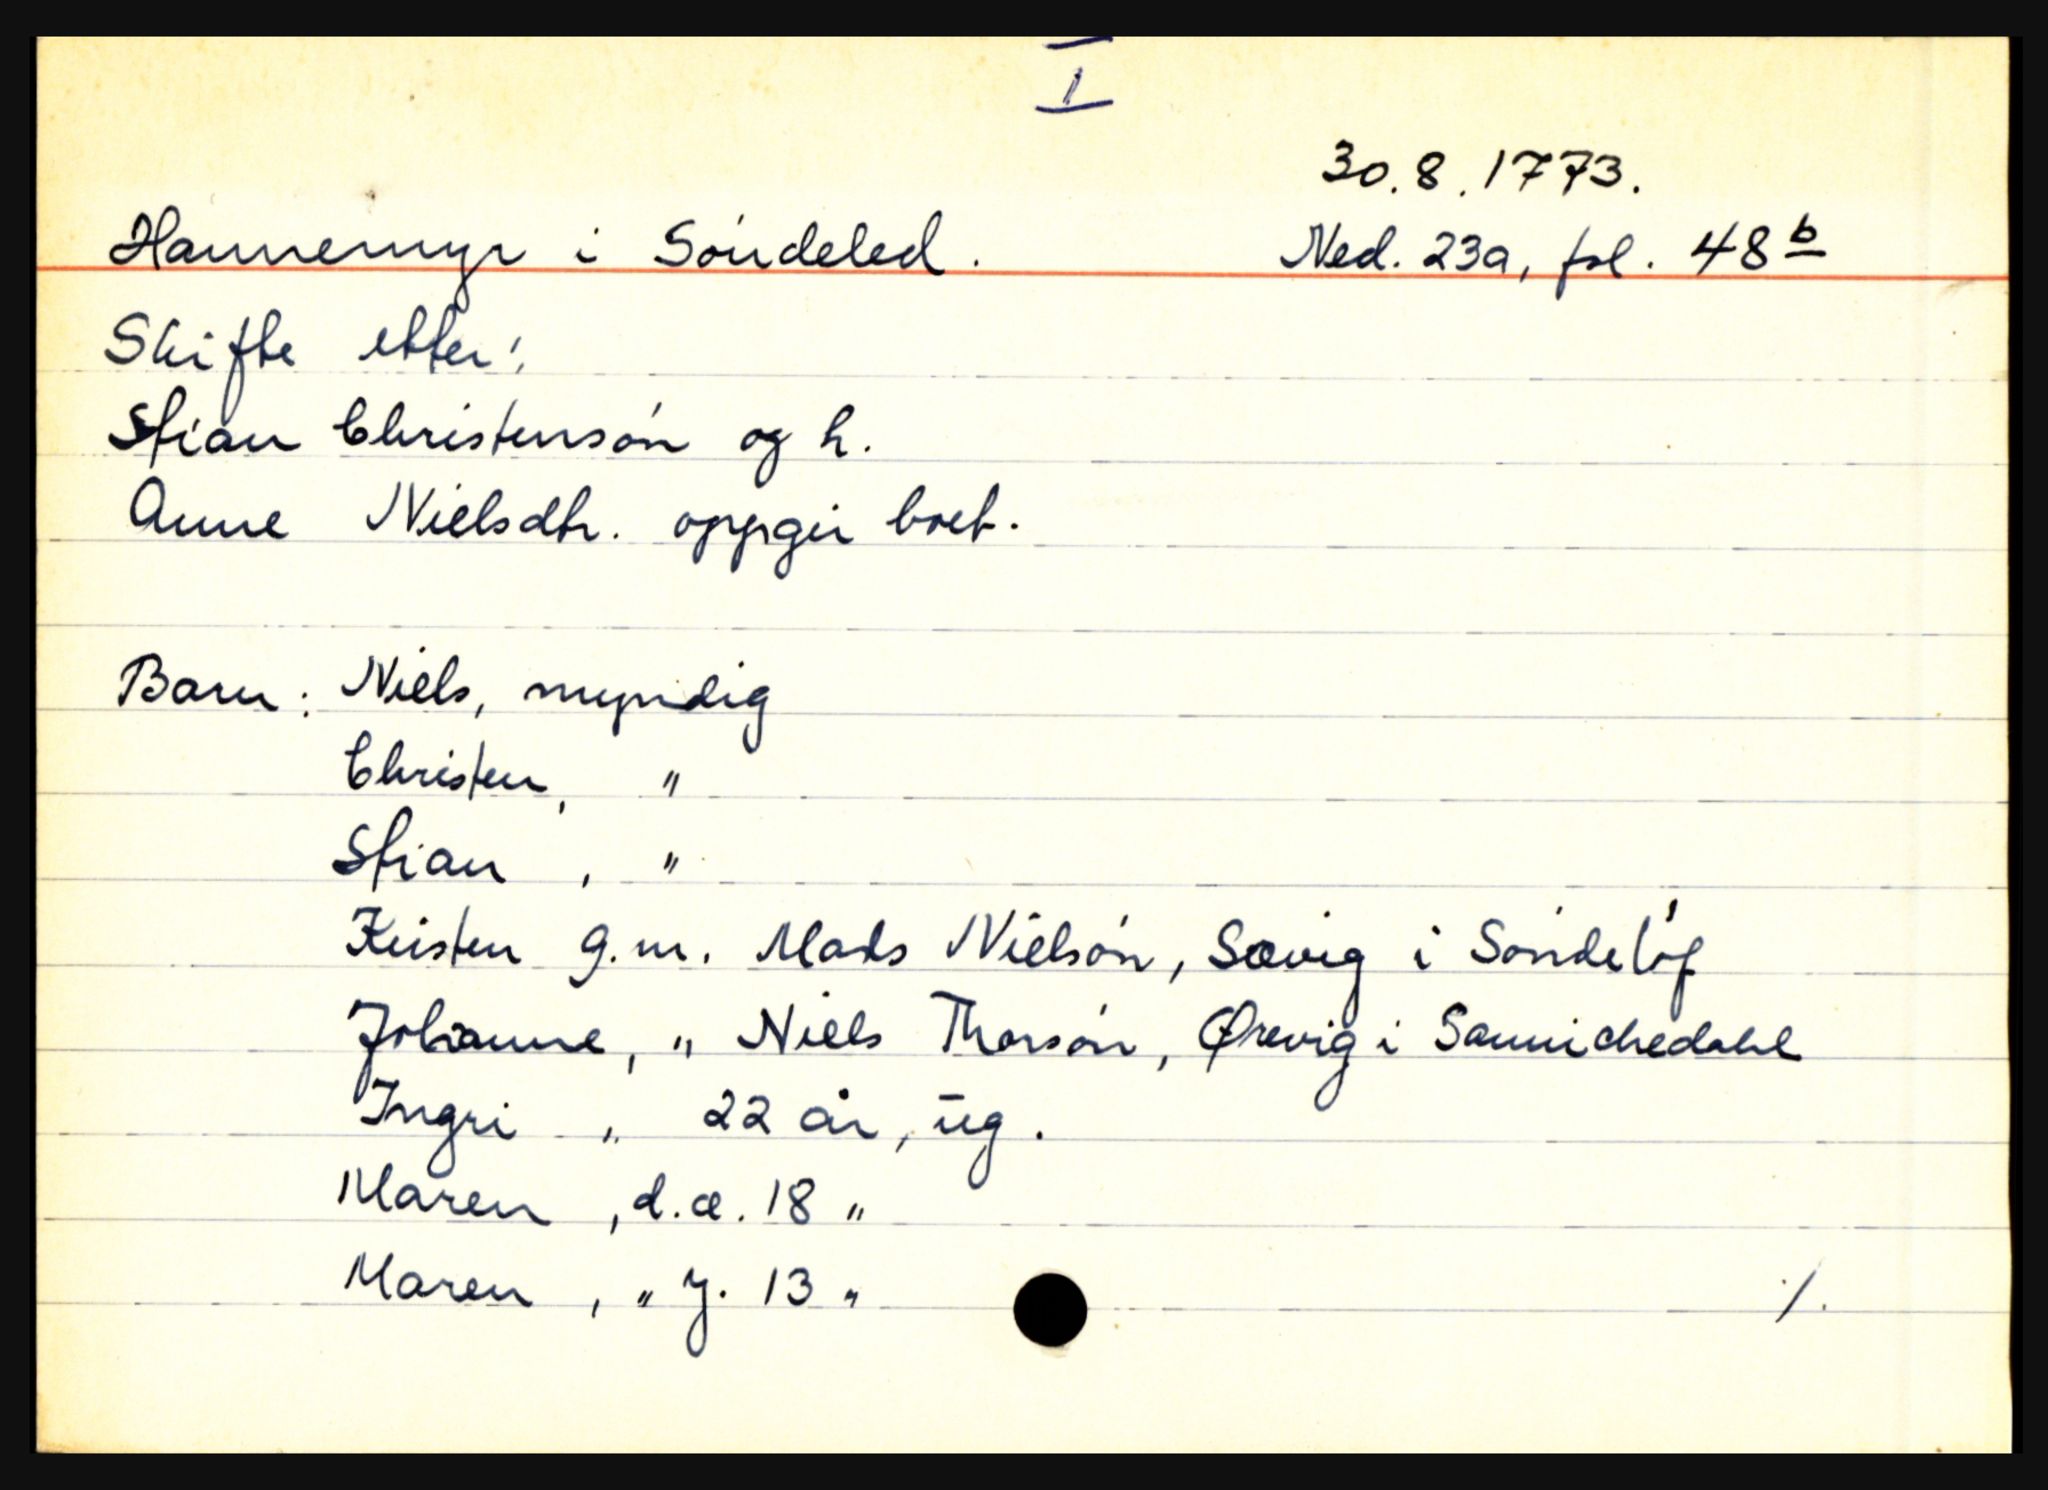 I
30.8.1773.
Hannemyr i Söndeled. Ned. 23a, fol. 48b
Skifte etter:
Stian Christensön og h.
Anne Nielsdtr. oppgir boet.
Barn: Niels, myndig
Christen, "
Stian, "
Kirsten g.m. Mads Nielsön, Sævig i Söndelöf
Johanne, " Niels Thorsön, Ørevig i Sannichedahl
Ingri " 22 år, ug.
Maren, d.æ. 18 "
Maren, " y. 13 "
./.